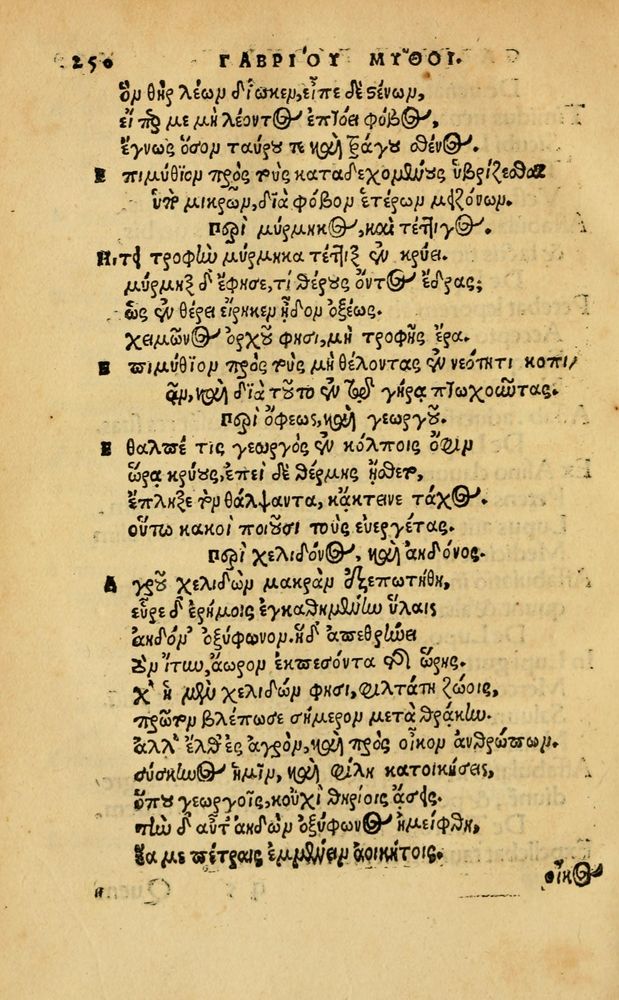 250 ΓΑΒΡΙΟΥ ΜΥΘΟΙ.
ὃν θὴρ λέων δίωκεν, εἶπε δὲ στένων,
εἴπερ με μὴ λέοντος ἐπτόει φόβος,
ἔγνως ὅσον ταύρου τε καὶ τράγου σθένος.
Ἐπιμύθιον πρὸς τοὺς καταδεχομένους ὑβρίζεσθαι
ὑπὸ μικρῶν, διὰ φόβον ἑτέρων μειζόνων.
περὶ μύρμηκος, καὶ τέττιγος.
Ἤιτει τροφὴν μύρμηκα τέττιξ ἐν κρύει.
μύρμηξ δ' ἔφησε, τί θέρους ὄντος ἔδρας;
ὡς ἐν θέρει εἴρηκεν ᾖδον ὀξέως.
χειμῶνος ὀρχοῦ φησι, μὴ τροφῆς ἔρα.
Ἐπιμύθιον πρὸς τοὺς μὴ θέλοντας ἐν νεότητι κοπι,
ᾷν, καὶ διὰ τοῦτο ἐν τῷ γήρᾳ πτωχοῶτας.
περὶ ὄφεως, καὶ γεωργοῦ.
Ἔθαλπέ τις γεωργὸς ἐν κόλποις ὄφιν
ὥρα κρύους, ἐπεὶ δὲ θέρμης ᾔσθετο,
ἔπληξε τὸν θάλψαντα, κἄκτεινε τάχος.
οὕτω κακοὶ ποιοῦσι τοὺς εὐεργέτας.
περὶ χελιδόνος, καὶ ἀηδόνος.
Ἀγροῦ χελιδὼν μακρὰν ἐξεπωτήθη,
εὗρε δ' ἐρήμοις ἐγκαθημένην ὕλαις
ἀηδόν' ὀξύφωνον. ἡ δ' ἀπεθρήνει
τὸν ἴτυν, ἄωρον ἐκπεσόντα τῆς ὥρης.
χ' ἡ μὲν χελιδών φησι, φιλτάτη ζώοις,
πρῶτον βλέπω σε σήμερον μετὰ θράκην.
ἀλλ' ἔλθ' ἐς ἀγρὸν, καὶ πρὸς οἶκον ἀνθρώπων.
σύσκηνος ἡμῖν, καὶ φίλη κατοικήσεις,
ὅπου γεωργοῖς, κοὐχὶ θηρίοις ᾄσεις.
τὴν δ' αὖτ' ἀηδὼν ὀξύφωνος ἠμείφθη,
ἔα με πέτραις ἐμμένειν ἀοικήτοις.
οἶκος